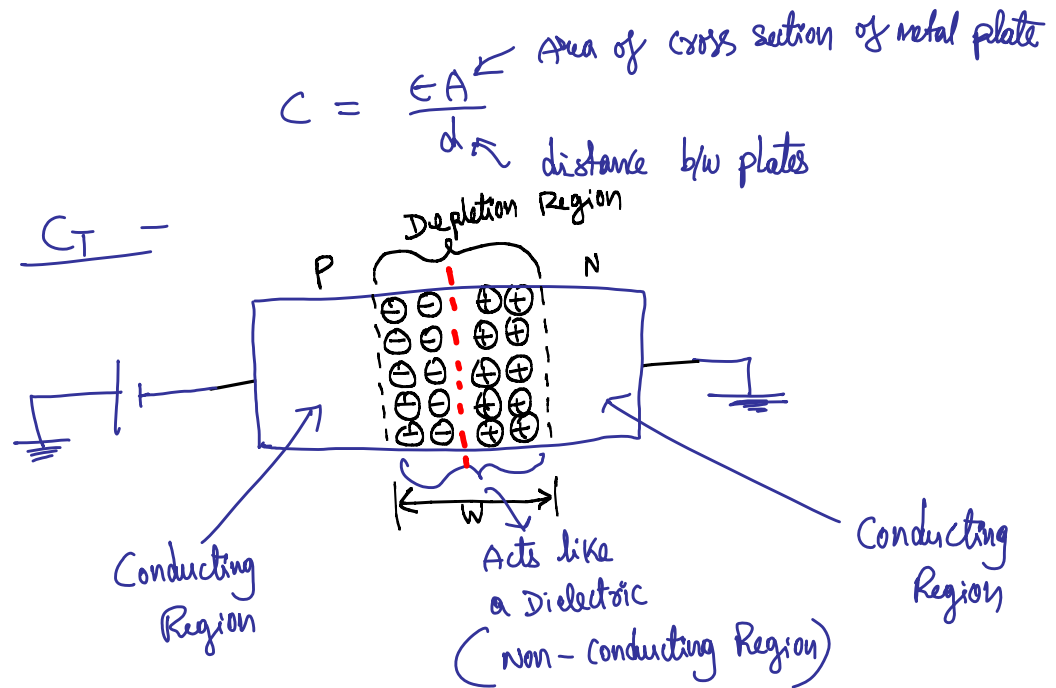 Area of cross section of metal plate
C = ∈A / d
distance b/w plates
Depletion Region
C_T -
P
N
⊖ ⊖ ⊕ ⊕
⊖ ⊖ ⊕ ⊕
⊖ ⊖ ⊕ ⊕
⊖ ⊖ ⊕ ⊕
⊖ ⊖ ⊕ ⊕
W
Conducting
Region
Acts like
a Dielectric
(Non-Conducting Region)
Conducting
Region